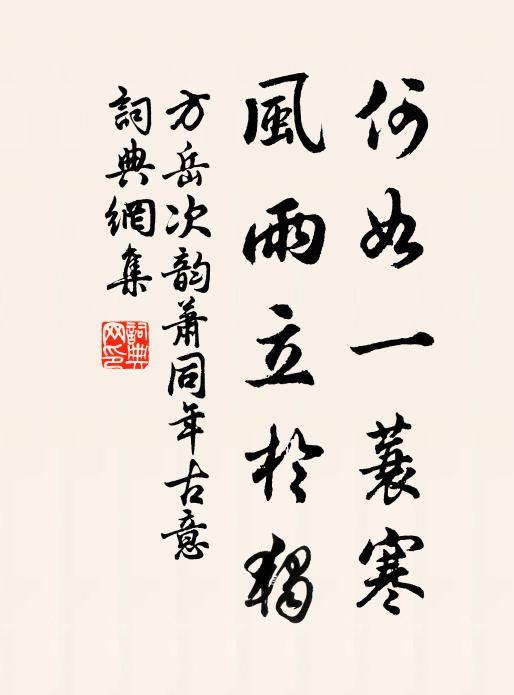 何如一蓑寒
風雨立於獨
方岳次韵蕭同年古意
詞典網集
詞典網印